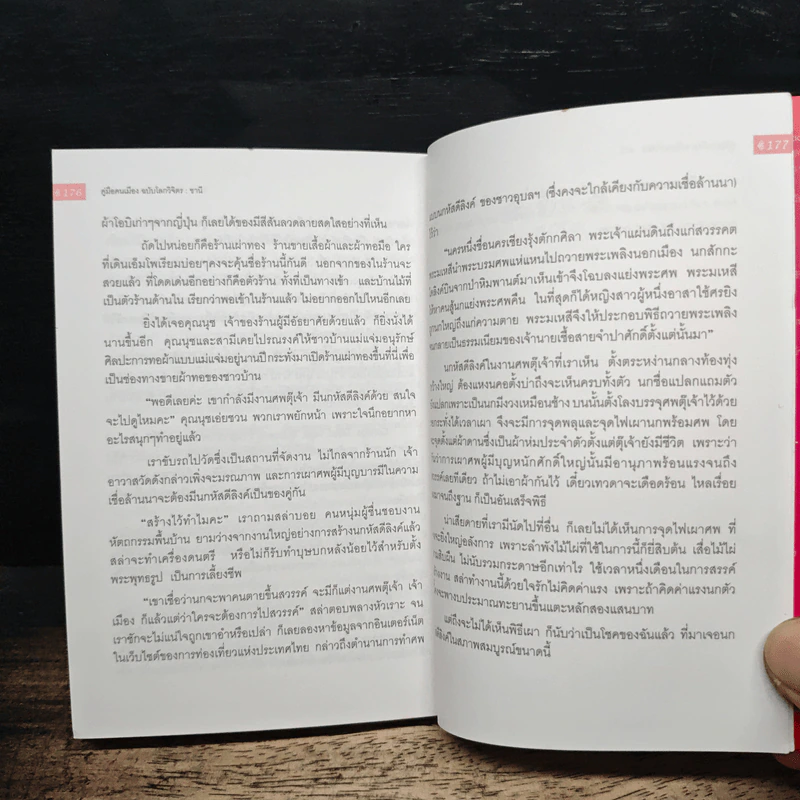 176
คู่มือคนเมือง ฉบับโลกวิจิตร : ชานี
ผ้าโอบิเก่าๆจากญี่ปุ่น ก็เลยได้ของมีสีสันลวดลายสดใสอย่างที่เห็น
ถัดไปหน่อยก็คือร้านเผ่าทอง ร้านขายเสื้อผ้าและผ้าทอมือ ใคร
ที่เดินเอ็มโพเรียมบ่อยๆคงจะคุ้นชื่อร้านนี้กันดี นอกจากของในร้านจะ
สวยแล้ว ที่โดดเด่นอีกอย่างก็คือตัวร้าน ทั้งที่เป็นทางเข้า และบ้านไม้ที่
เป็นตัวร้านด้านใน เรียกว่าพอเข้าในร้านแล้ว ไม่อยากออกไปไหนอีกเลย
ยิ่งได้เจอคุณนุช เจ้าของร้านผู้มีอัธยาศัยด้วยแล้ว ก็ยิ่งนั่งได้
นานขึ้นอีก คุณนุชและสามีเคยไปรณรงค์ให้ชาวบ้านแม่แจ่มอนุรักษ์
ศิลปะการทอผ้าแบบแม่แจ่มอยู่นานปีกระทั่งมาเปิดร้านเผ่าทองขึ้นที่นี่เพื่อ
เป็นช่องทางขายผ้าทอของชาวบ้าน
“พอดีเลยค่ะ เขากำลังมีงานศพตุ๊เจ้า มีนกหัสดีลิงค์ด้วย สนใจ
จะไปดูไหมคะ” คุณนุชเอ่ยชวน พวกเราพยักหน้า เพราะใจนึกอยากหา
อะไรสนุกๆทำอยู่แล้ว
เราขับรถไปวัดซึ่งเป็นสถานที่จัดงาน ไม่ไกลจากร้านนัก เจ้า
อาวาสวัดดังกล่าวเพิ่งจะมรณภาพ และการเผาศพผู้มีบุญบารมีในความ
เชื่อล้านนาจะต้องมีนกหัสดีลิงค์เป็นของคู่กัน
“สร้างไว้ทำไมคะ” เราถามสล่าบอย คนหนุ่มผู้ชื่นชอบงาน
หัตถกรรมพื้นบ้าน ยามว่างจากงานใหญ่อย่างการสร้างนกหัสดีลิงค์แล้ว
สล่าจะทำเครื่องดนตรี หรือไม่ก็รับทำบุษบกหลังน้อยไว้สำหรับตั้ง
พระพุทธรูป เป็นการเลี้ยงชีพ
“เขาเชื่อว่านกจะพาคนตายขึ้นสวรรค์ จะมีก็แต่งานศพตุ๊เจ้า เจ้า
เมือง ก็แล้วแต่ว่าใครจะต้องการไปสวรรค์” สล่าตอบพลางหัวเราะ จน
เราชักจะไม่แน่ใจถูกเขาอำหรือเปล่า ก็เลยลองหาข้อมูลจากอินเตอร์เน็ต
ในเว็บไซต์ของการท่องเที่ยวแห่งประเทศไทย กล่าวถึงตำนานการทำศพ
177
แบบนกหัสดีลิงค์ ของชาวอุบลฯ (ซึ่งคงจะใกล้เคียงกับความเชื่อล้านนา)
ไว้ว่า
“นครหนึ่งชื่อนครเชียงรุ้งตักกศิลา พระเจ้าแผ่นดินถึงแก่สวรรคต
พระมเหสีนำพระบรมศพแห่แหนไปถวายพระเพลิงนอกเมือง นกสักกะ
ไดลิงค์บินจากป่าหิมพานต์มาเห็นเข้าจึงโฉบลงแย่งพระศพ พระมเหสี
ให้หาคนสู้นกแย่งพระศพคืน ในที่สุดก็ได้หญิงสาวผู้หนึ่งอาสาใช้ศรยิง
ถูกนกใหญ่ถึงแก่ความตาย พระมเหสีจึงให้ประกอบพิธีถวายพระเพลิง
จนกลายเป็นธรรมเนียมของเจ้านายเชื้อสายจำปาศักดิ์ตั้งแต่นั้นมา”
นกหัสดีลิงค์ในงานศพตุ๊เจ้าที่เราเห็น ตั้งตระหง่านกลางท้องทุ่ง
กว้างใหญ่ ต้องแหงนคอตั้งบ่าถึงจะเห็นครบทั้งตัว นกชื่อแปลกแถมตัว
ยังแปลกเพราะเป็นนกมีงวงเหมือนช้าง บนนั้นตั้งโลงบรรจุศพตุ๊เจ้าไว้ด้วย
กระทั่งได้เวลาเผา จึงจะมีการจุดพลุและจุดไฟเผานกพร้อมศพ โดย
จะจุดตั้งแต่ผ้าดานซึ่งเป็นผ้าห่มประจำตัวตั้งแต่ตุ๊เจ้ายังมีชีวิต เพราะว่า
กันว่าการเผาศพผู้มีบุญหนักศักดิ์ใหญ่นั้นมีอานุภาพร้อนแรงจนถึง
สวรรค์เลยทีเดียว ถ้าไม่เอาผ้ากั้นไว้ เดี๋ยวเทวดาจะเดือดร้อน ไหลเรื่อย
ลงมาจนถึงฐาน ก็เป็นอันเสร็จพิธี
น่าเสียดายที่เรามีนัดไปที่อื่น ก็เลยไม่ได้เห็นการจุดไฟเผาศพ ที่
คงจะยิ่งใหญ่อลังการ เพราะลำพังไม้ไผ่ที่ใช้ในการนี้ก็ยี่สิบต้น เสื่อไม้ไผ่
สามสิบผืน ไม่นับรวมกระดาษอีกเท่าไร ใช้เวลาหนึ่งเดือนในการสรรค์
สร้างงาน สล่าทำงานนี้ด้วยใจรักไม่คิดค่าแรง เพราะถ้าคิดค่าแรงนกตัว
นี้คงจะพางบประมาณทะยานขึ้นแตะหลักสองแสนบาท
แต่ถึงจะไม่ได้เห็นพิธีเผา ก็นับว่าเป็นโชคของฉันแล้ว ที่มาเจอนก
หัสดีลิงค์ในสภาพสมบูรณ์ขนาดนี้